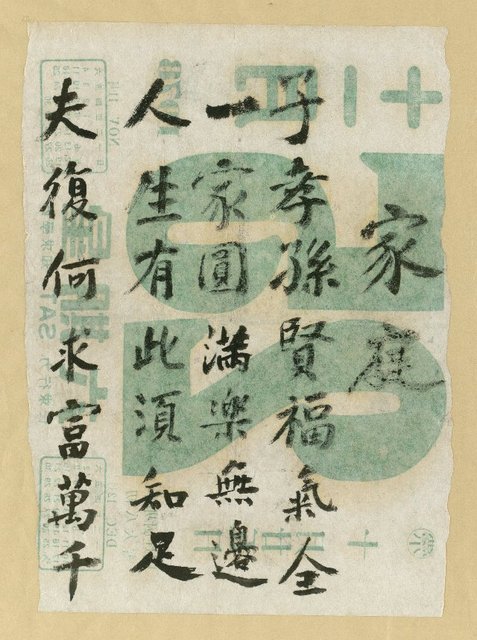 家庭
子孝孫賢福氣全
一家圓滿樂無邊
人生有此須知足
夫復何求富萬千